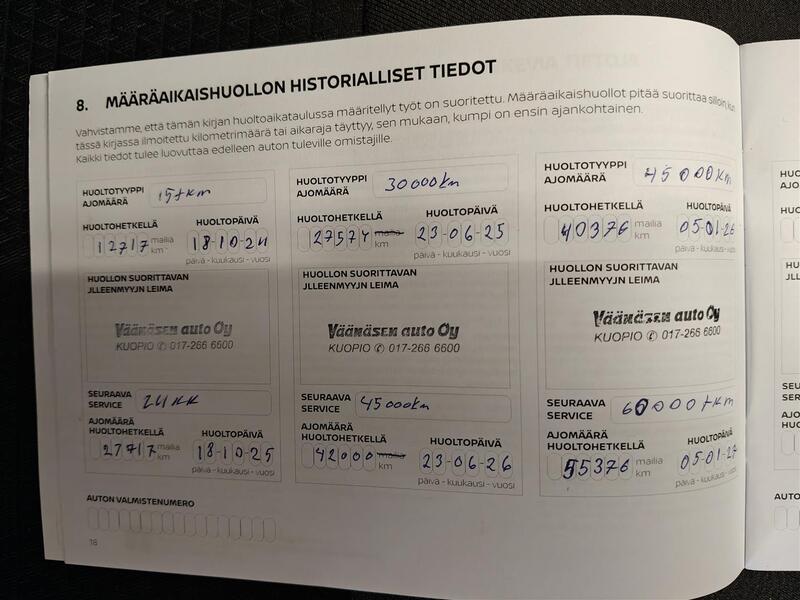 8. MÄÄRÄAIKAISHUOLLON HISTORIALLISET TIEDOT
Vahvistamme, että tämän kirjan huoltoaikataulussa määritellyt työt on suoritettu. Määräaikaishuollot pitää suorittaa silloin, kun
tässä kirjassa ilmoitettu kilometrimäärä tai aikaraja täyttyy, sen mukaan, kumpi on ensin ajankohtainen.
Kaikki tiedot tulee luovuttaa edelleen auton tuleville omistajille.
HUOLTOTYYPPI
AJOMÄÄRÄ 15tkm
HUOLTOHETKELLÄ HUOLTOPÄIVÄ
12717 mailia km 18-10-24
päivä - kuukausi - vuosi
HUOLLON SUORITTAVAN
JLLEENMYYJN LEIMA
Väänäsen auto Oy
KUOPIO ✆ 017-266 6600
SEURAAVA
SERVICE 24KK
AJOMÄÄRÄ
HUOLTOHETKELLÄ HUOLTOPÄIVÄ
27717 mailia km 18-10-25
päivä - kuukausi - vuosi
AUTON VALMISTENUMERO
18
HUOLTOTYYPPI
AJOMÄÄRÄ 30000km
HUOLTOHETKELLÄ HUOLTOPÄIVÄ
27574 mailia km 23-06-25
päivä - kuukausi - vuosi
HUOLLON SUORITTAVAN
JLLEENMYYJN LEIMA
Väänäsen auto Oy
KUOPIO ✆ 017-266 6600
SEURAAVA
SERVICE 45000km
AJOMÄÄRÄ
HUOLTOHETKELLÄ HUOLTOPÄIVÄ
42000 mailia km 23-06-26
päivä - kuukausi - vuosi
HUOLTOTYYPPI
AJOMÄÄRÄ 45000km
HUOLTOHETKELLÄ HUOLTOPÄIVÄ
40376 mailia km 05-01-26
päivä - kuukausi - vuosi
HUOLLON SUORITTAVAN
JLLEENMYYJN LEIMA
Väänäsen auto Oy
KUOPIO ✆ 017-266 6600
SEURAAVA
SERVICE 60000tkm
AJOMÄÄRÄ
HUOLTOHETKELLÄ HUOLTOPÄIVÄ
55376 mailia km 05-01-27
päivä - kuukausi - vuosi